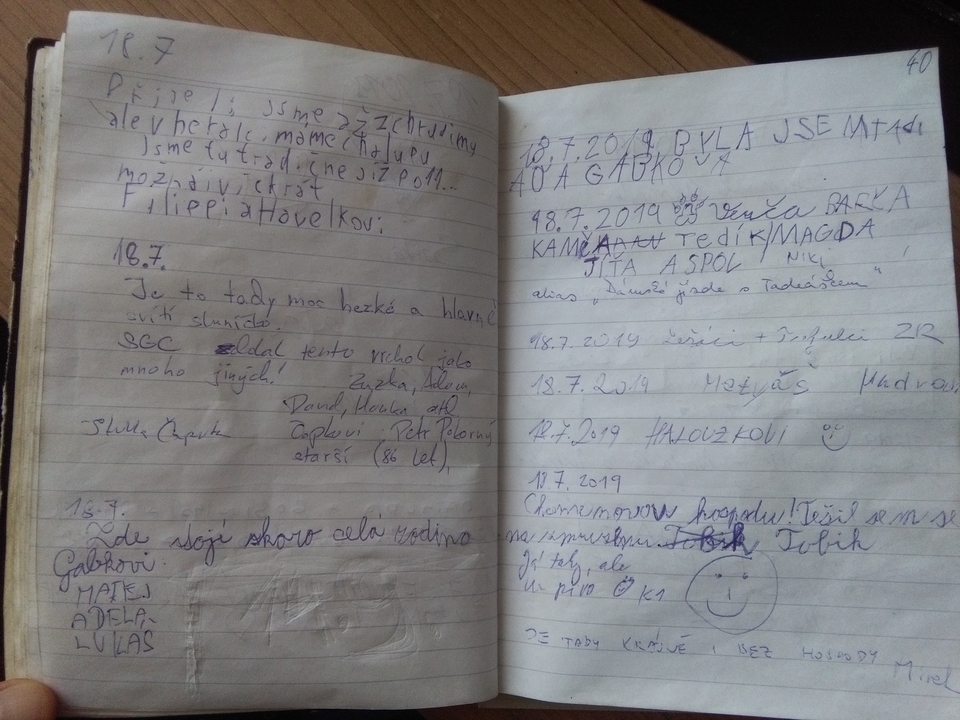 18.7
Přijeli jsme až z chrudimy
ale v herálci máme chalupu
Jsme tu tradičně již po 11...
možná i víckrát
Filippi a Havelkovi
18.7.
Je to tady moc hezké a hlavně
svítí sluníčko.
SGC zdolal tento vrchol jako
mnoho jiných! Zuzka, Adam,
David, Honka atd
Čapkovi Petr Pokorný
starší (86 let),
18.7.
Zde stojí skoro celá rodina
Gabkovi
MATEJ
ADELA
LUKAS
40
18.7.2019 BYLA JSEM TADI
ADA GABKOVA
18.7.2019 Venča BARČA
KAMČA TEDÍK/MAGDA
JÍŤA A SPOL NIKI
alias „Dámská jízda s Tadeášem"
18.7.2019 + ZR
18.7.2019 Matyáš
18.7.2019 HALOUZKOVI
18.7.2019
hospodu! Těšil sem se
na zmrzlinu. Tobik Tobik
Já taky, ale
na pivo K1
JE TADY KRÁSNĚ I BEZ HOSPODY